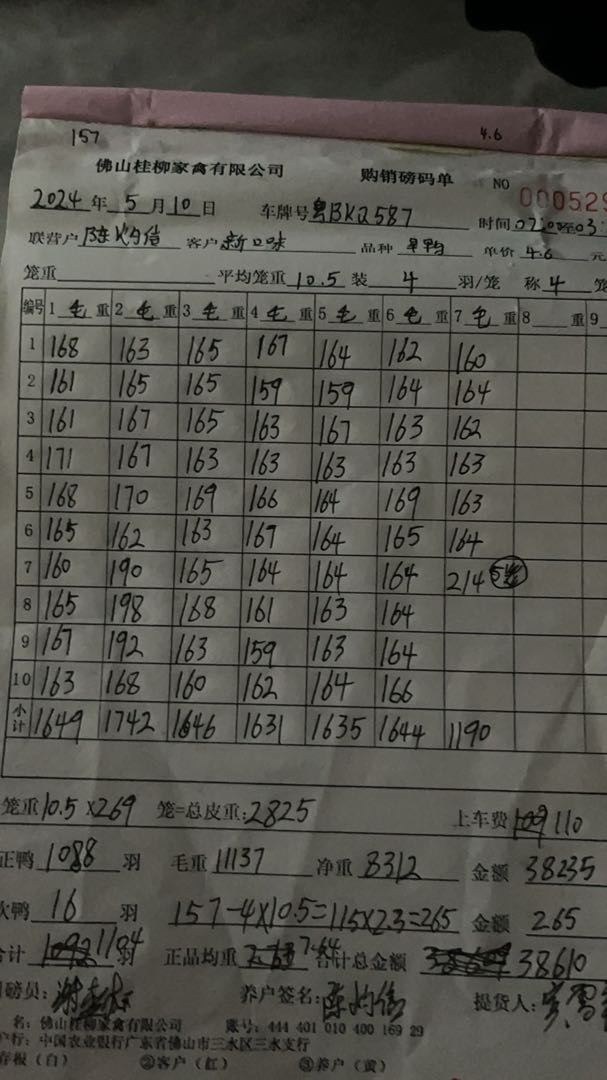 157 4.6
佛山桂柳家禽有限公司 购销磅码单 NO 000529
2024 年 5 月 10 日 车牌号 粤BKQ2587 时间 07:00至03:
联营户 陈灼信 客户 新口味 品种 单价 4.6 元
笼重 平均笼重 10.5 装 4 羽/笼 称 4 笼
编号 1 毛 重 2 毛 重 3 毛 重 4 毛 重 5 毛 重 6 毛 重 7 毛 重 8 重 9
1 168 163 165 167 164 162 160
2 161 165 165 159 159 164 164
3 161 167 165 163 167 163 162
4 171 167 163 163 163 163 163
5 168 170 169 166 164 169 163
6 165 162 163 167 164 165 164
7 160 190 165 164 164 164 214 5笼
8 165 198 168 161 163 164
9 167 192 163 159 163 164
10 163 168 160 162 164 166
小计 1649 1742 1646 1631 1635 1644 1190
笼重 10.5×269 笼=总皮重: 2825 上车费 109 110
正鸭 1088 羽 毛重 11137 净重 8312 金额 38235
次鸭 16 羽 157-4×10.5=115×2.3=265 金额 265
合计 1092 1104 羽 正品均重 7.64 合计总金额 38610
司磅员: 养户签名: 陈灼信 提货人:
名: 佛山桂柳家禽有限公司 账号: 444 401 010 400 169 29
户行: 中国农业银行广东省佛山市三水区三水支行
存根(白) ②客户(红) ③养户(黄)